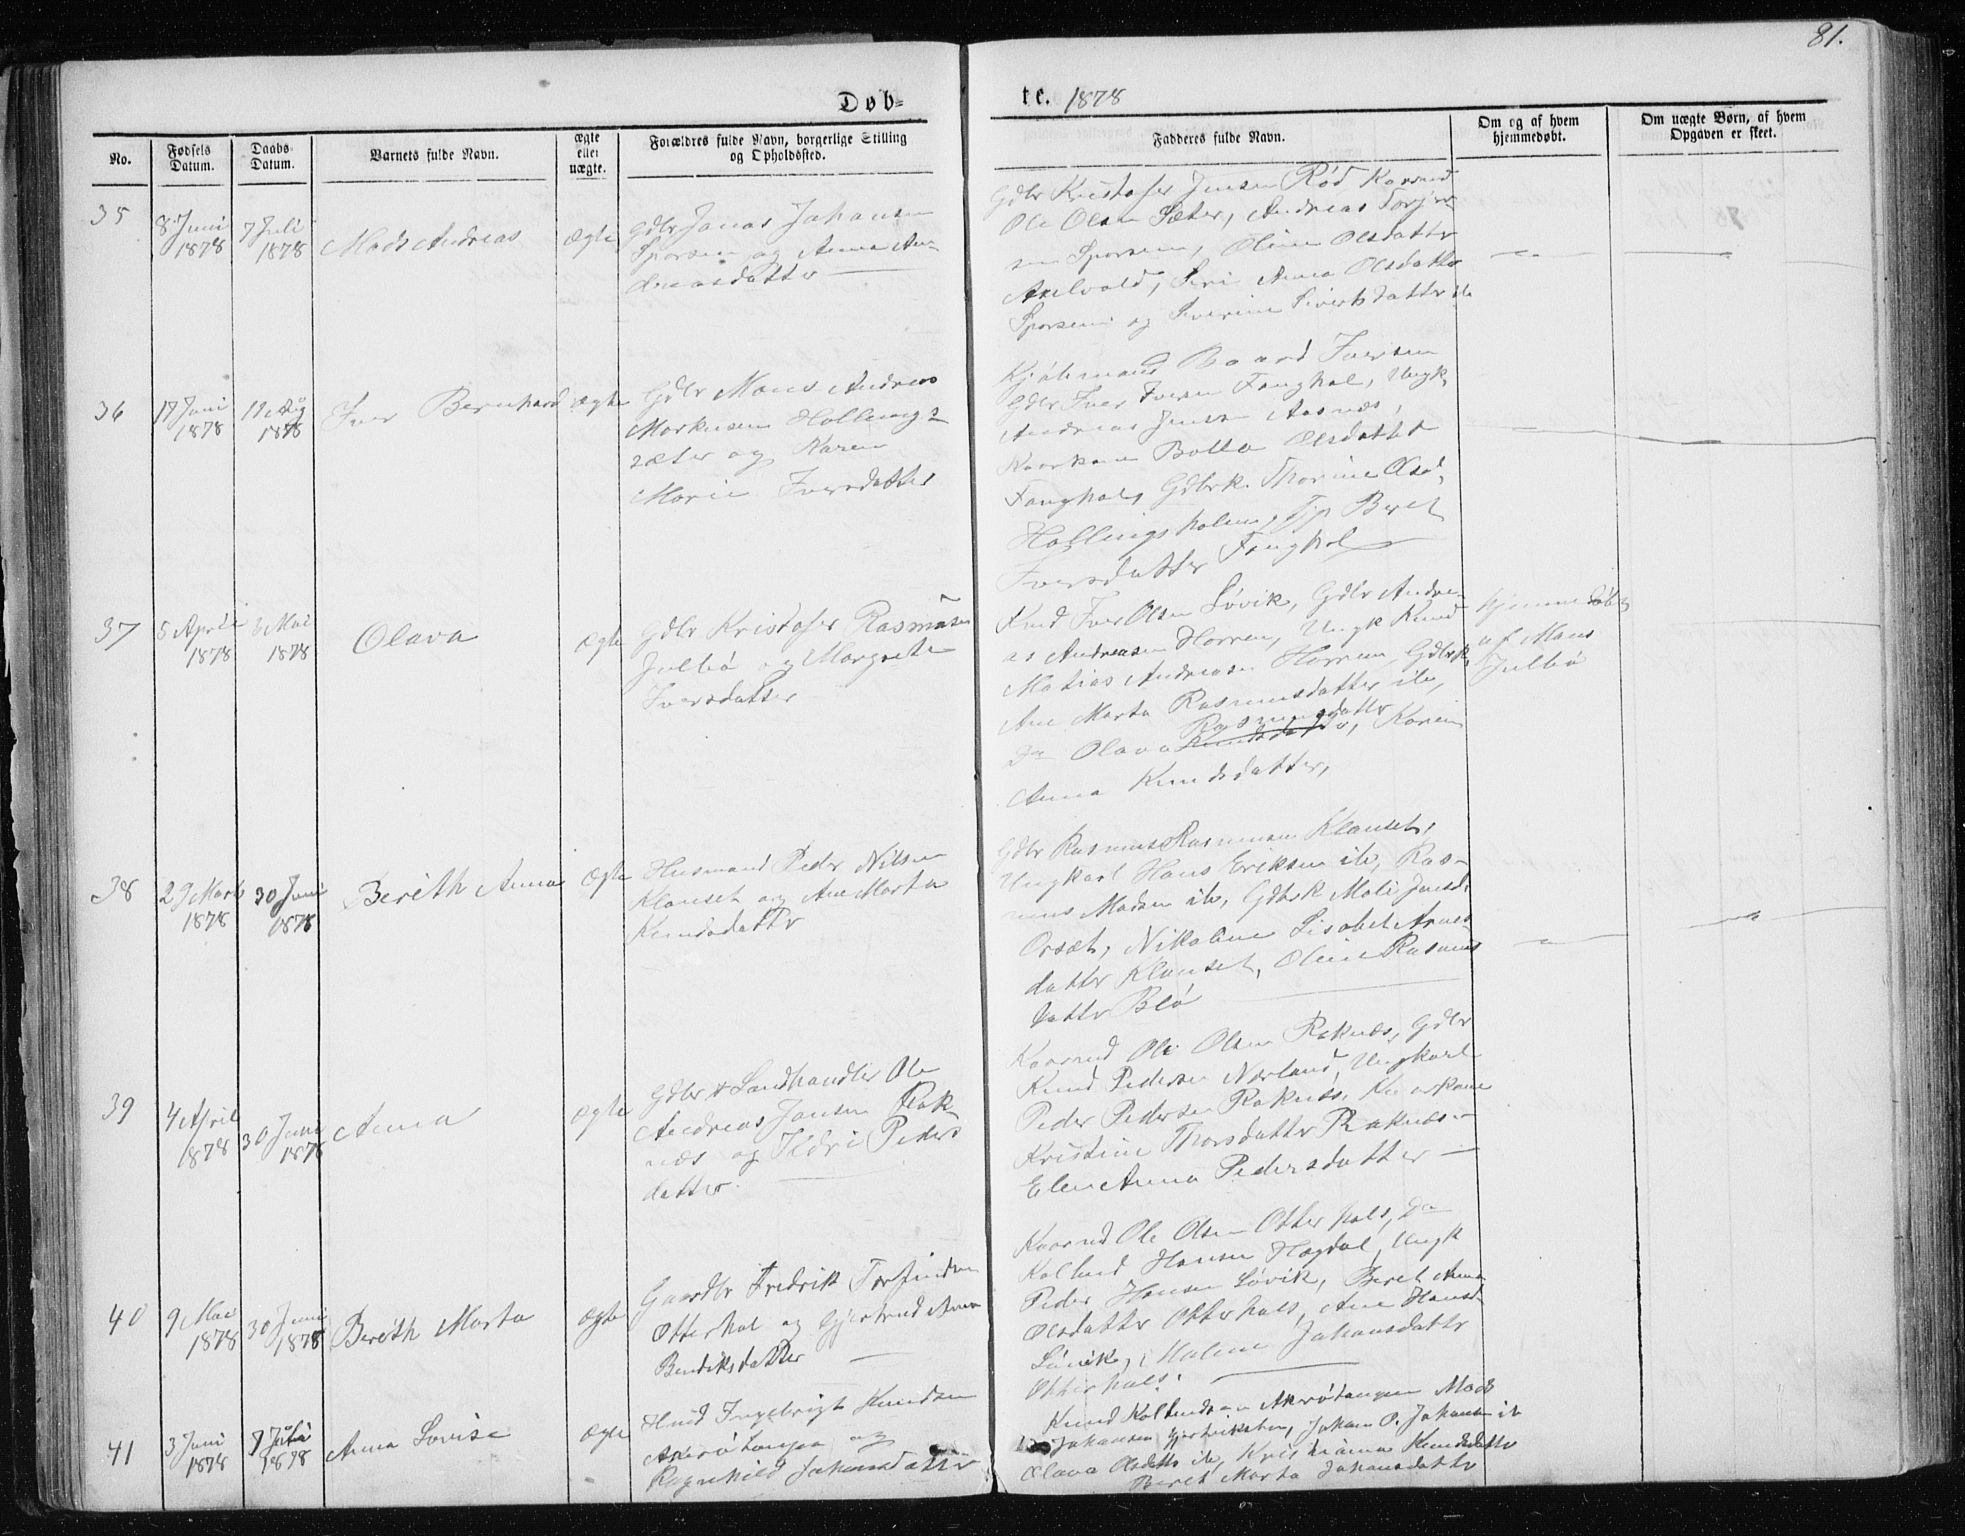 81.
Døb=
te. 1878
No.
Fødsels Datum.
Daabs Datum.
Barnets fulde Navn.
ægte eller uægte.
Forældres fulde Navn, borgerlige Stilling og Opholdssted.
Fadderes fulde Navn.
Om og af hvem hjemmedøbt.
Om uægte Børn, af hvem Opgaven er skeet.
35
8 Juni 1878
7 Juli 1878
Mads Andreas
Ægte
Gdbr Jonas Johansen
Sporsem og Anna An=
dreasdatter
Gdbr Kristofer Jensen Rød
Ole Olsen Sæter, Andreas
Sporsem, Oline Olsdatter
Anna Olsdatter
Sporsem og Severine Sivertsdatter
36
17 Juni 1878
1878
Iver Bernhard
ægte
Gdbr Mons Andreas
Markusen Hollings=
sæter og Karen
Marie Iversdatter
Baard Iversen
Gdbr Iver Iversen Fanghol, Ungk.
Andreas Jensen Aasnæs,
Kaarkone Bolla Olsdatter
Fanghol, Gdbrk. Thorine Olsd.
Hollingsholm, Pige Beret
Iversdatter Fanghol
37
5 April 1878
Mai 1878
Olava
Ægte
Gdbr Kristofer Rasmusen
Julbø og Margrete
Iversdatter
Iver Olsen Løvik, Gdbr Andre=
as Andreasen Horrem, Ungk Knud
Matias Andreasen Horrem, Gdbrk.
Ane Marta Rasmusdatter ib,
Rasmusdatter
Olava Knudsdatter, Karen
Anna Knudsdatter,
Hjemmedøbt
af Mons
Julbø
38
29 Marts 1878
30 Juni 1878
Berith Anna
Ægte
Husmand Peder Nilsen
Klauset og Ane Marta
Knudsdatter
Gdbr Rasmus Rasmusen Klauset,
Ungkarl Hans Eriksen ib, Ras=
mus Madsen ib, Gdbrk Mali Jonsd.
Orset, Nikoline Lisabet Arnes=
datter Klauset, Oline Rasmus
datter Blø
39
4 April 1878
30 Juni 1878
Anna
ægte
Gdbr & Landhandler Ole
Andreas Jansen Rak=
næs og Ildri Peders
datter.
Kaarmd Ole Olsen Raknæs, Gdbr
Knud Pedersen Nerland, Ungkarl
Peder Pedersen Raknæs, Kaarkone
Kristine Thorsdatter Raknæs
Elen Anna Pedersdatter
40
9 Mai 1878
30 Juni 1878
Berith Marta
ægte
Gaardbr Fredrik Torfindsen
Otterhal og Gjertrud Anna
Bendiksdatter
Kaarmd Ole Olsen Otterhals, Do
Kolbend Hansen Hagdal, Ungk
Peder Hansen Løvik, Beret Anna
Olsdatter Otterhals, Ane Hansd.
Løvik, Malene Johansdatter
Otterhals.
41
3 Juni 1878
7 Juli 1878
Anna Lovise
ægte
Husmd Ingebrigt Knudsen
Akerøtangen og
Ragnhild Johansdatter
Knud Kolbendsen Akerøtangen Mads
Johansen, Johan P. Johansen ib
Olava Olsdatter ib, Kristianna Knudsdatter
Beret Marta Johansdatter